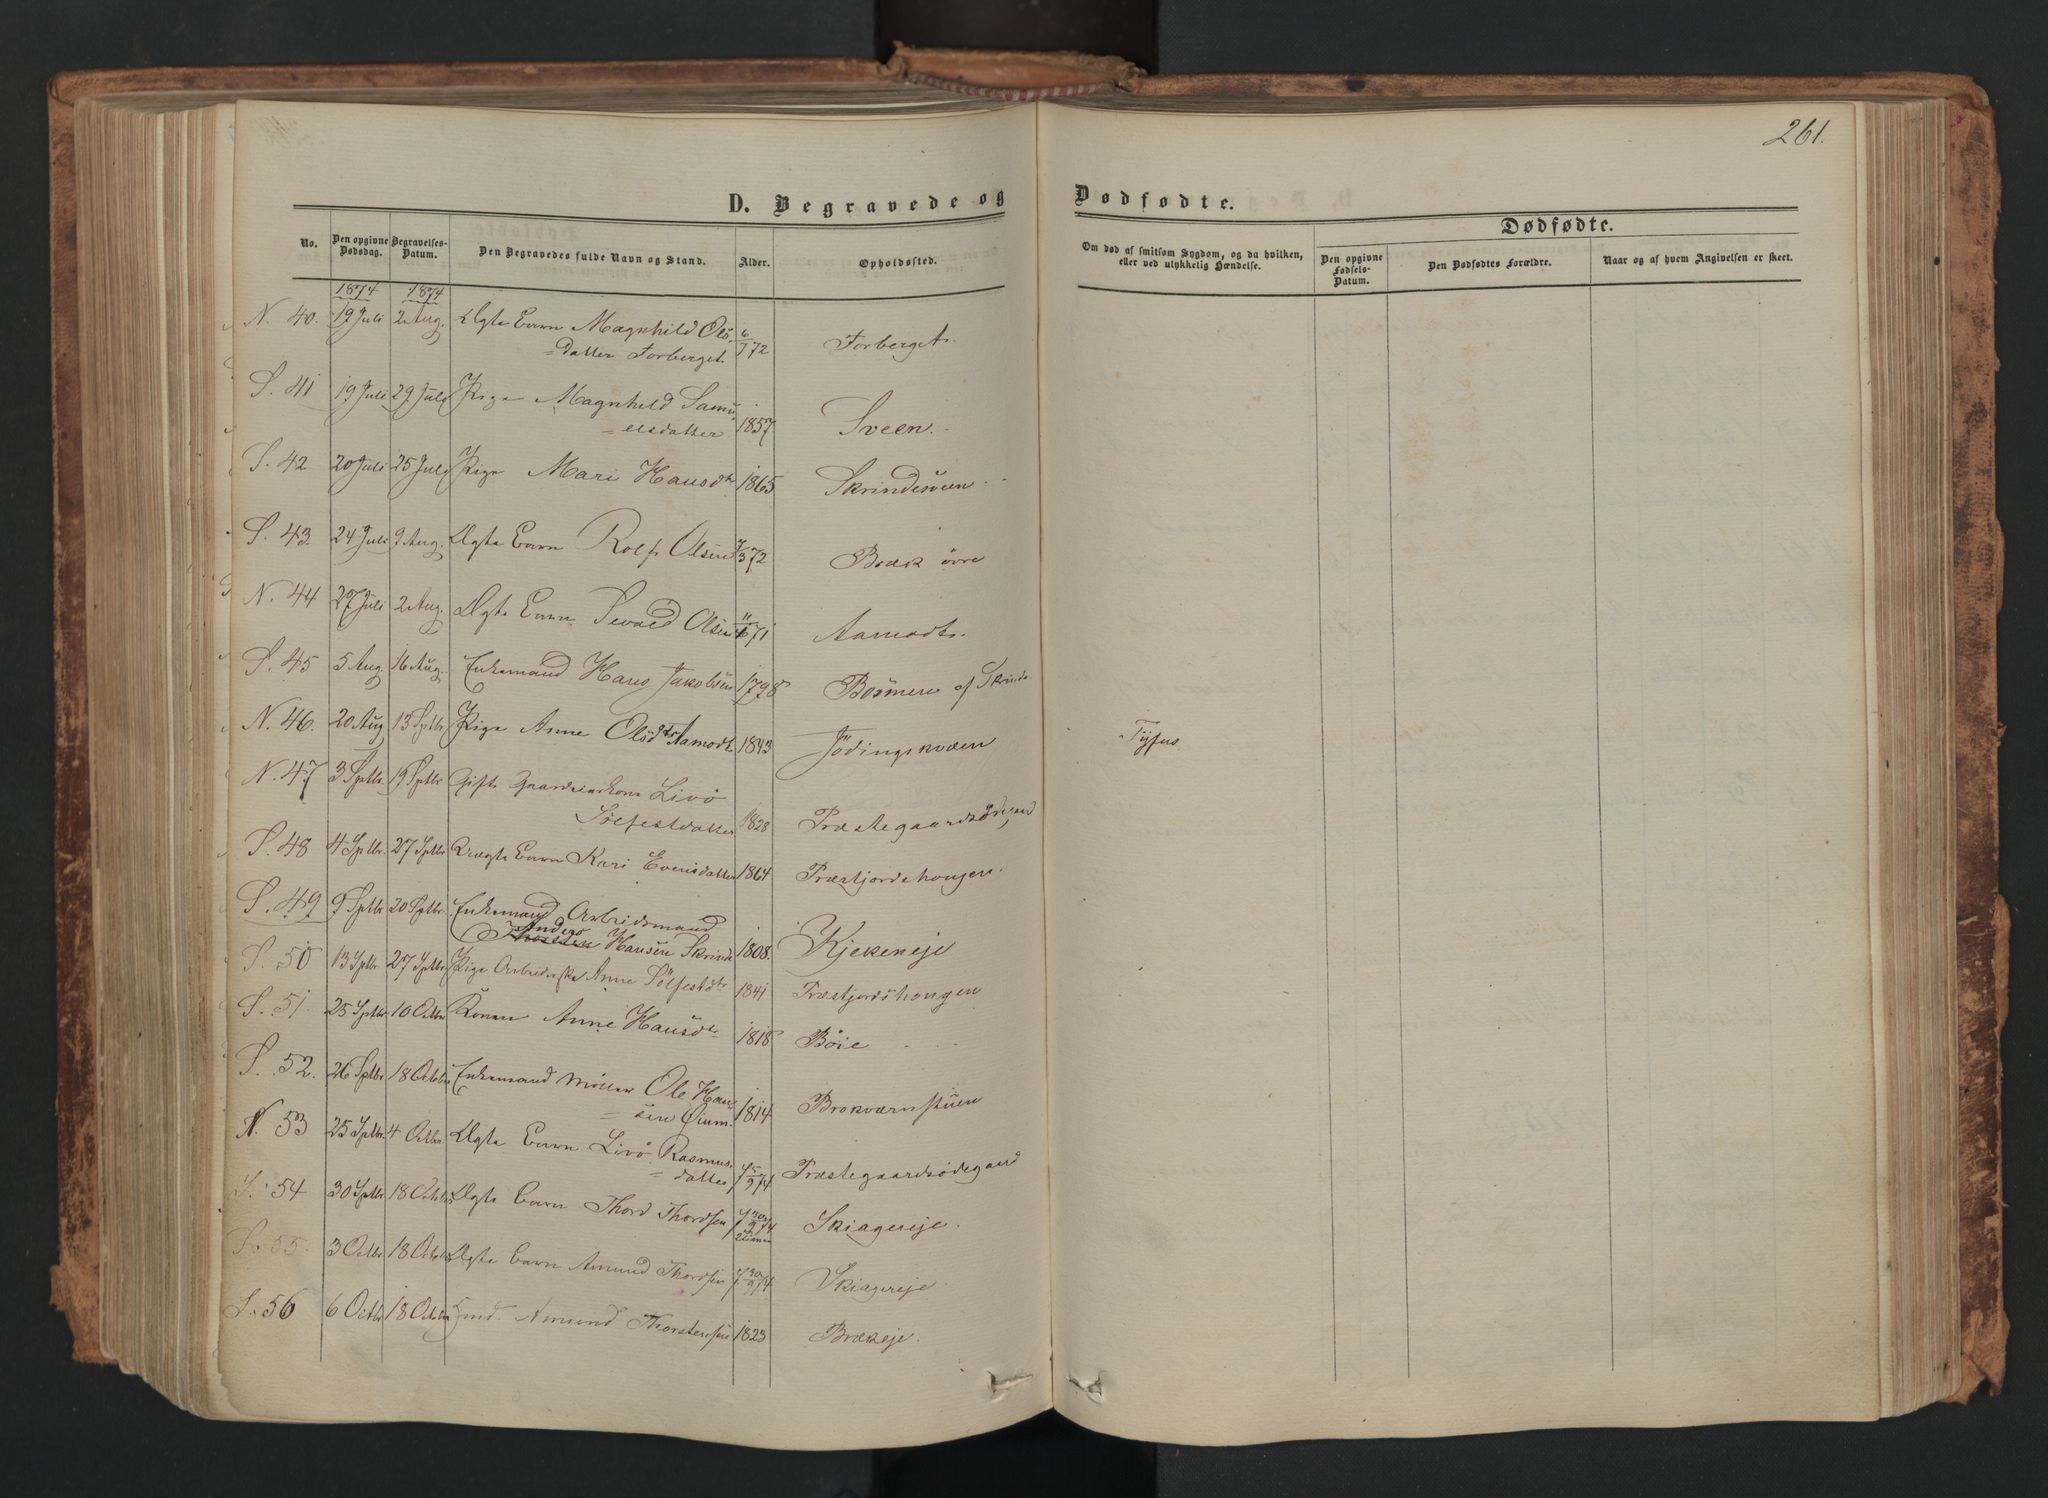 261.
D. Begravede og Dødfødte.
Dødfødte.
No.
Den opgivne Dødsdag.
Begravelses-Datum.
Den Begravedes fulde Navn og Stand.
Alder.
Opholdssted.
Om død af smitsom Sygdom, og da hvilken, eller ved ulykkelig Hændelse.
Den opgivne Fødsels-Datum.
Den Dødfødtes Forældre.
Naar og af hvem Angivelsen er skeet.
1874 1874
N. 40. 19 Juli 2 Aug. Ægte Barn Magnhild Ols- 6/7 72 Forberget.
=datter Forberget.
S. 41 19 Juli 29 Juli Pige Magnhild Samu
=elsdatter 1857 Sveen.
S. 42 20 Juli 25 Juli Pige Mari Hansdtr 1865 Skrindsveen
S. 43. 24 Juli 9 Aug. Ægte Barn Rolf Olsen 7/3 72 Bræk övre
N. 44 27 Juli 2 Aug. Ægte Barn Sevald Olsen 71 Aamodt.
S. 45 5 Aug. 16 Aug. Enkemand Hans Jakobsen 1798 af Skrinde
N. 46. 20 Aug 13 Sptbr. Pige Anne Olsdtr Aamodt 1843 Jödingskvæen Tyfus
N. 47 3 Sptbr. 19 Sptbr. Gift Livö
Sölfestdatter 1828 Præstegaardsödegaard
S. 48 4 Sptbr. 27 Sptbr. Uægte Barn Kari Evensdatter 1864 Præstjordshougen.
S. 49 9 Sptbr. 20 Sptbr. Enkemand Arbeidsmand
Anders
Thosten Hansen Skrinde 1808. Kjekeneje
S. 50 13 Sptbr. 27 Sptbr. Pige Anne Sölfestdtr 1841 Præstjordshougen
S. 51. 25 Sptbr. 10 Octbr. Konen Anne Hansdtr 1818 Böie
S. 52. 26 Sptbr. 18 Octbr. Enkemand Möller Ole Han
=sen Öium. 1814 Brokværnstuen
N. 53 25 Sptbr. 4 Octbr. Ægte Barn Livö Rasmus-
=datter 5/9 74 Præstegaardsödegaard
S. 54 30 Sptbr. 18 Octbr. Ægte Barn Thord Thordsen 30/9 74 Skiagereje.
S. 55. 3 Octbr. 18 Octbr. Ægte Barn Amund Thordsen 30/9 74 Skiagereje
S. 56 6 Octbr. 18 Octbr. Amund Thorstensen 1823 Brækeje.